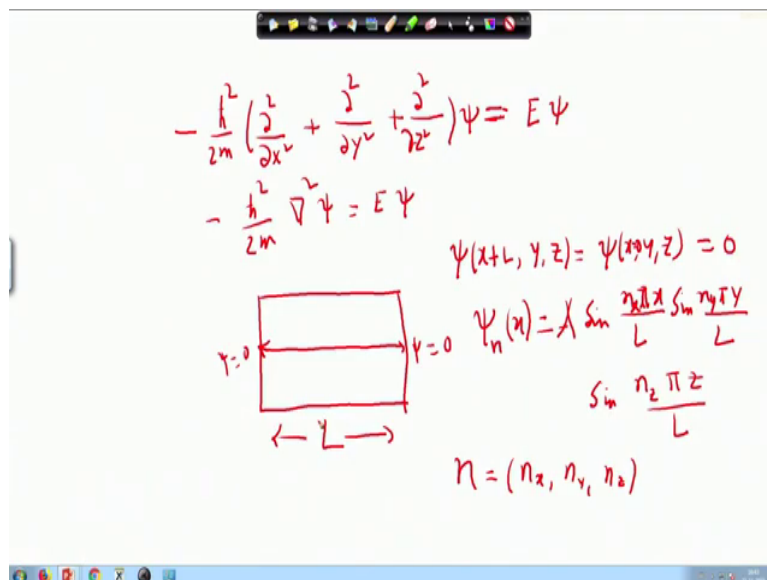 - ħ²/2m (∂²/∂x² + ∂²/∂y² + ∂²/∂z²) ψ = E ψ
- ħ²/2m ∇² ψ = E ψ
ψ(x+L, y, z) = ψ(x=0, y, z) = 0
ψₙ(x) = A sin nₓπx/L sin n_yπy/L
sin n_z π z/L
ψ=0
ψ=0
← L →
n = (nₓ, n_y, n_z)